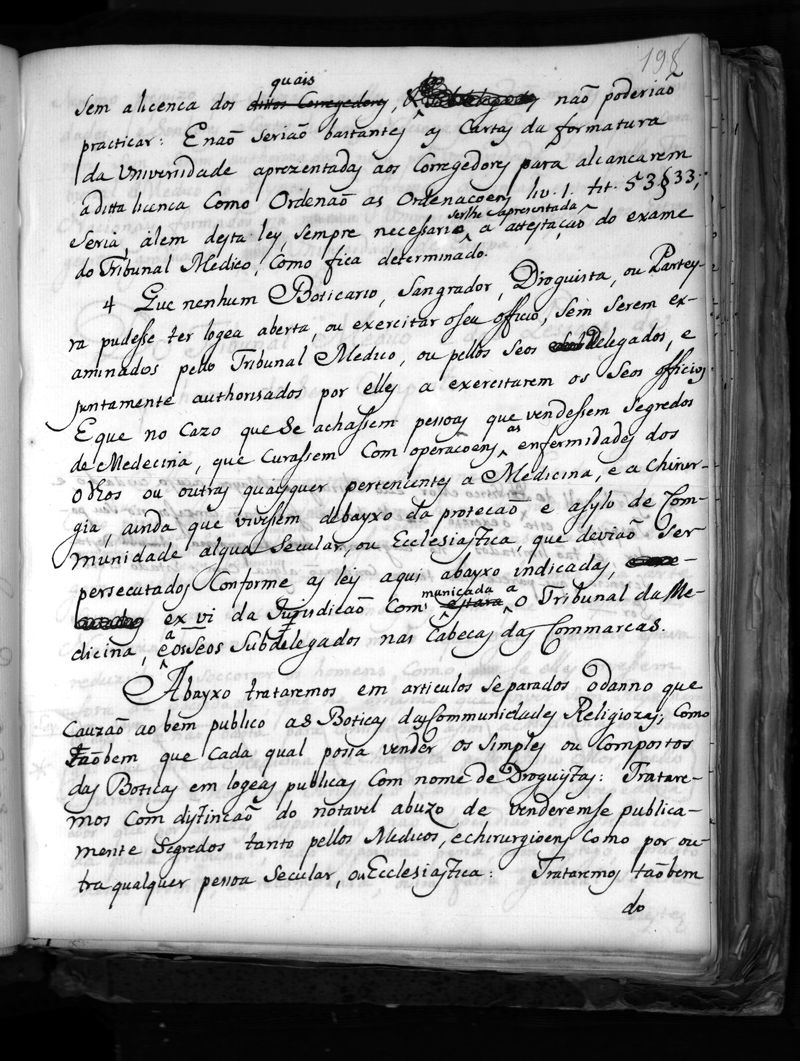 198
quais
sem alicenca dos dittos Corregedores, & Subdelegados não poderiaõ
practicar: Enaõ seriaõ bastantes as Cartas da formatura
da Universidade aprezentadas aos Corregedores para alcancarem
aditta licenca Como Ordenaõ as Ordenacoens liv. 1. tit. 53 § 33;
serlhe apresentada
seria, álem desta ley, sempre necessario a attestaçaõ do exame
do Tribunal Medico, Como fica determinado.
4 Que nenhum Boticario, Sangrador, Droguista, ou Partey-
ra pudesse ter logea aberta, ou exercitar oseu officio, sem serem ex-
aminados pello Tribunal Medico, ou pellos seos Delegados, e
juntamente authorisados por elles a exercitarem os seos officios
Eque no Cazo que se achassem pessoas que vendessem segredos
as
de Medecina, que Curassem Com operacoens enfermidades dos
Olhos ou outras quaisquer pertencentes a Medicina, e a Chirur-
gia, ainda que vivessem debayxo da protecaõ e asylo de Com-
munidade algua Secular, ou Ecclesiastica, que deviaõ ser
persecutados Conforme as ley aqui abayxo indicadas,
municada a
ex vi da Jurisdicaõ Com estara o Tribunal da Me-
a
dicina, e osseos Subdelegados nas Cabecas das Commarcas.
Abayxo trataremos em articulos separados odanno que
Cauzaõ ao bem publico as Boticas das Communidades Religiozas; Como
taõbem que Cada qual possa vender os simples ou Compostos
das Boticas em logeas publicas Com nome de Droguistas: Tratare-
mos Com distincaõ do notavel abuzo de venderemse publica-
mente Segredos tanto pellos Medicos, echirurgioens Como por ou-
tra qualquer pessoa Secular, ou Ecclesiastica: Trataremos taõbem
do